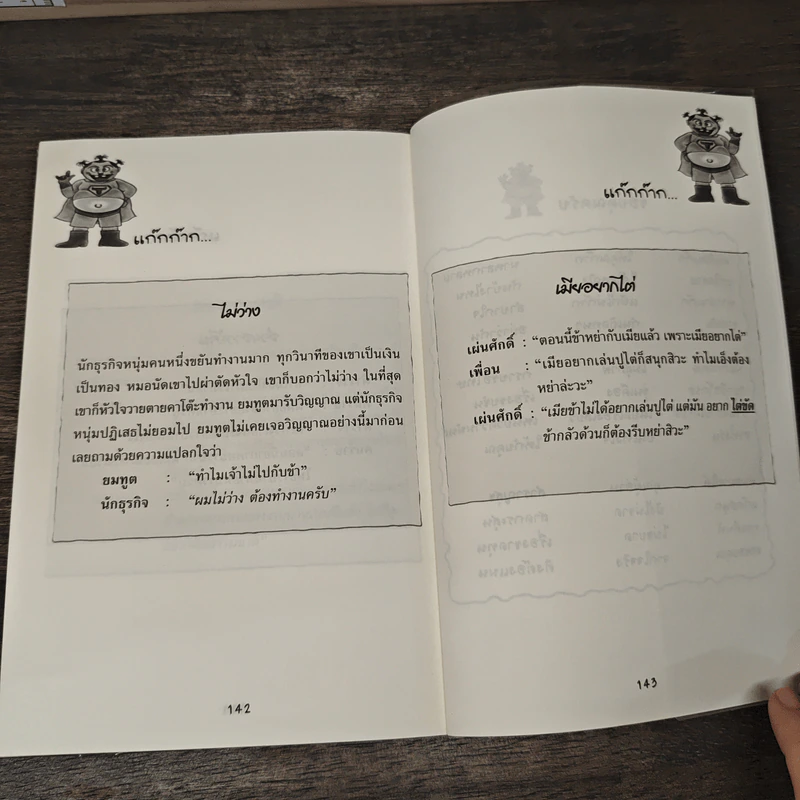 แก๊กก๊าก...
ไม่ว่าง
นักธุรกิจหนุ่มคนหนึ่งขยันทำงานมาก ทุกวินาทีของเขาเป็นเงิน
เป็นทอง หมอนัดเขาไปผ่าตัดหัวใจ เขาก็บอกว่าไม่ว่าง ในที่สุด
เขาก็หัวใจวายตายคาโต๊ะทำงาน ยมทูตมารับวิญญาณ แต่นักธุรกิจ
หนุ่มปฏิเสธไม่ยอมไป ยมทูตไม่เคยเจอวิญญาณอย่างนี้มาก่อน
เลยถามด้วยความแปลกใจว่า
ยมทูต : “ทำไมเจ้าไม่ไปกับข้า”
นักธุรกิจ : “ผมไม่ว่าง ต้องทำงานครับ”
142
แก๊กก๊าก...
เมียอยากไต่
เผ่นศักดิ์ : “ตอนนี้ข้าหย่ากับเมียแล้ว เพราะเมียอยากไต่”
เพื่อน : “เมียอยากเล่นปูไต่ก็สนุกสิวะ ทำไมเอ็งต้อง
หย่าล่ะวะ”
เผ่นศักดิ์ : “เมียข้าไม่ได้อยากเล่นปูไต่ แต่มัน อยาก ไต่ขัด
ข้ากลัวด้วนก็ต้องรีบหย่าสิวะ”
143